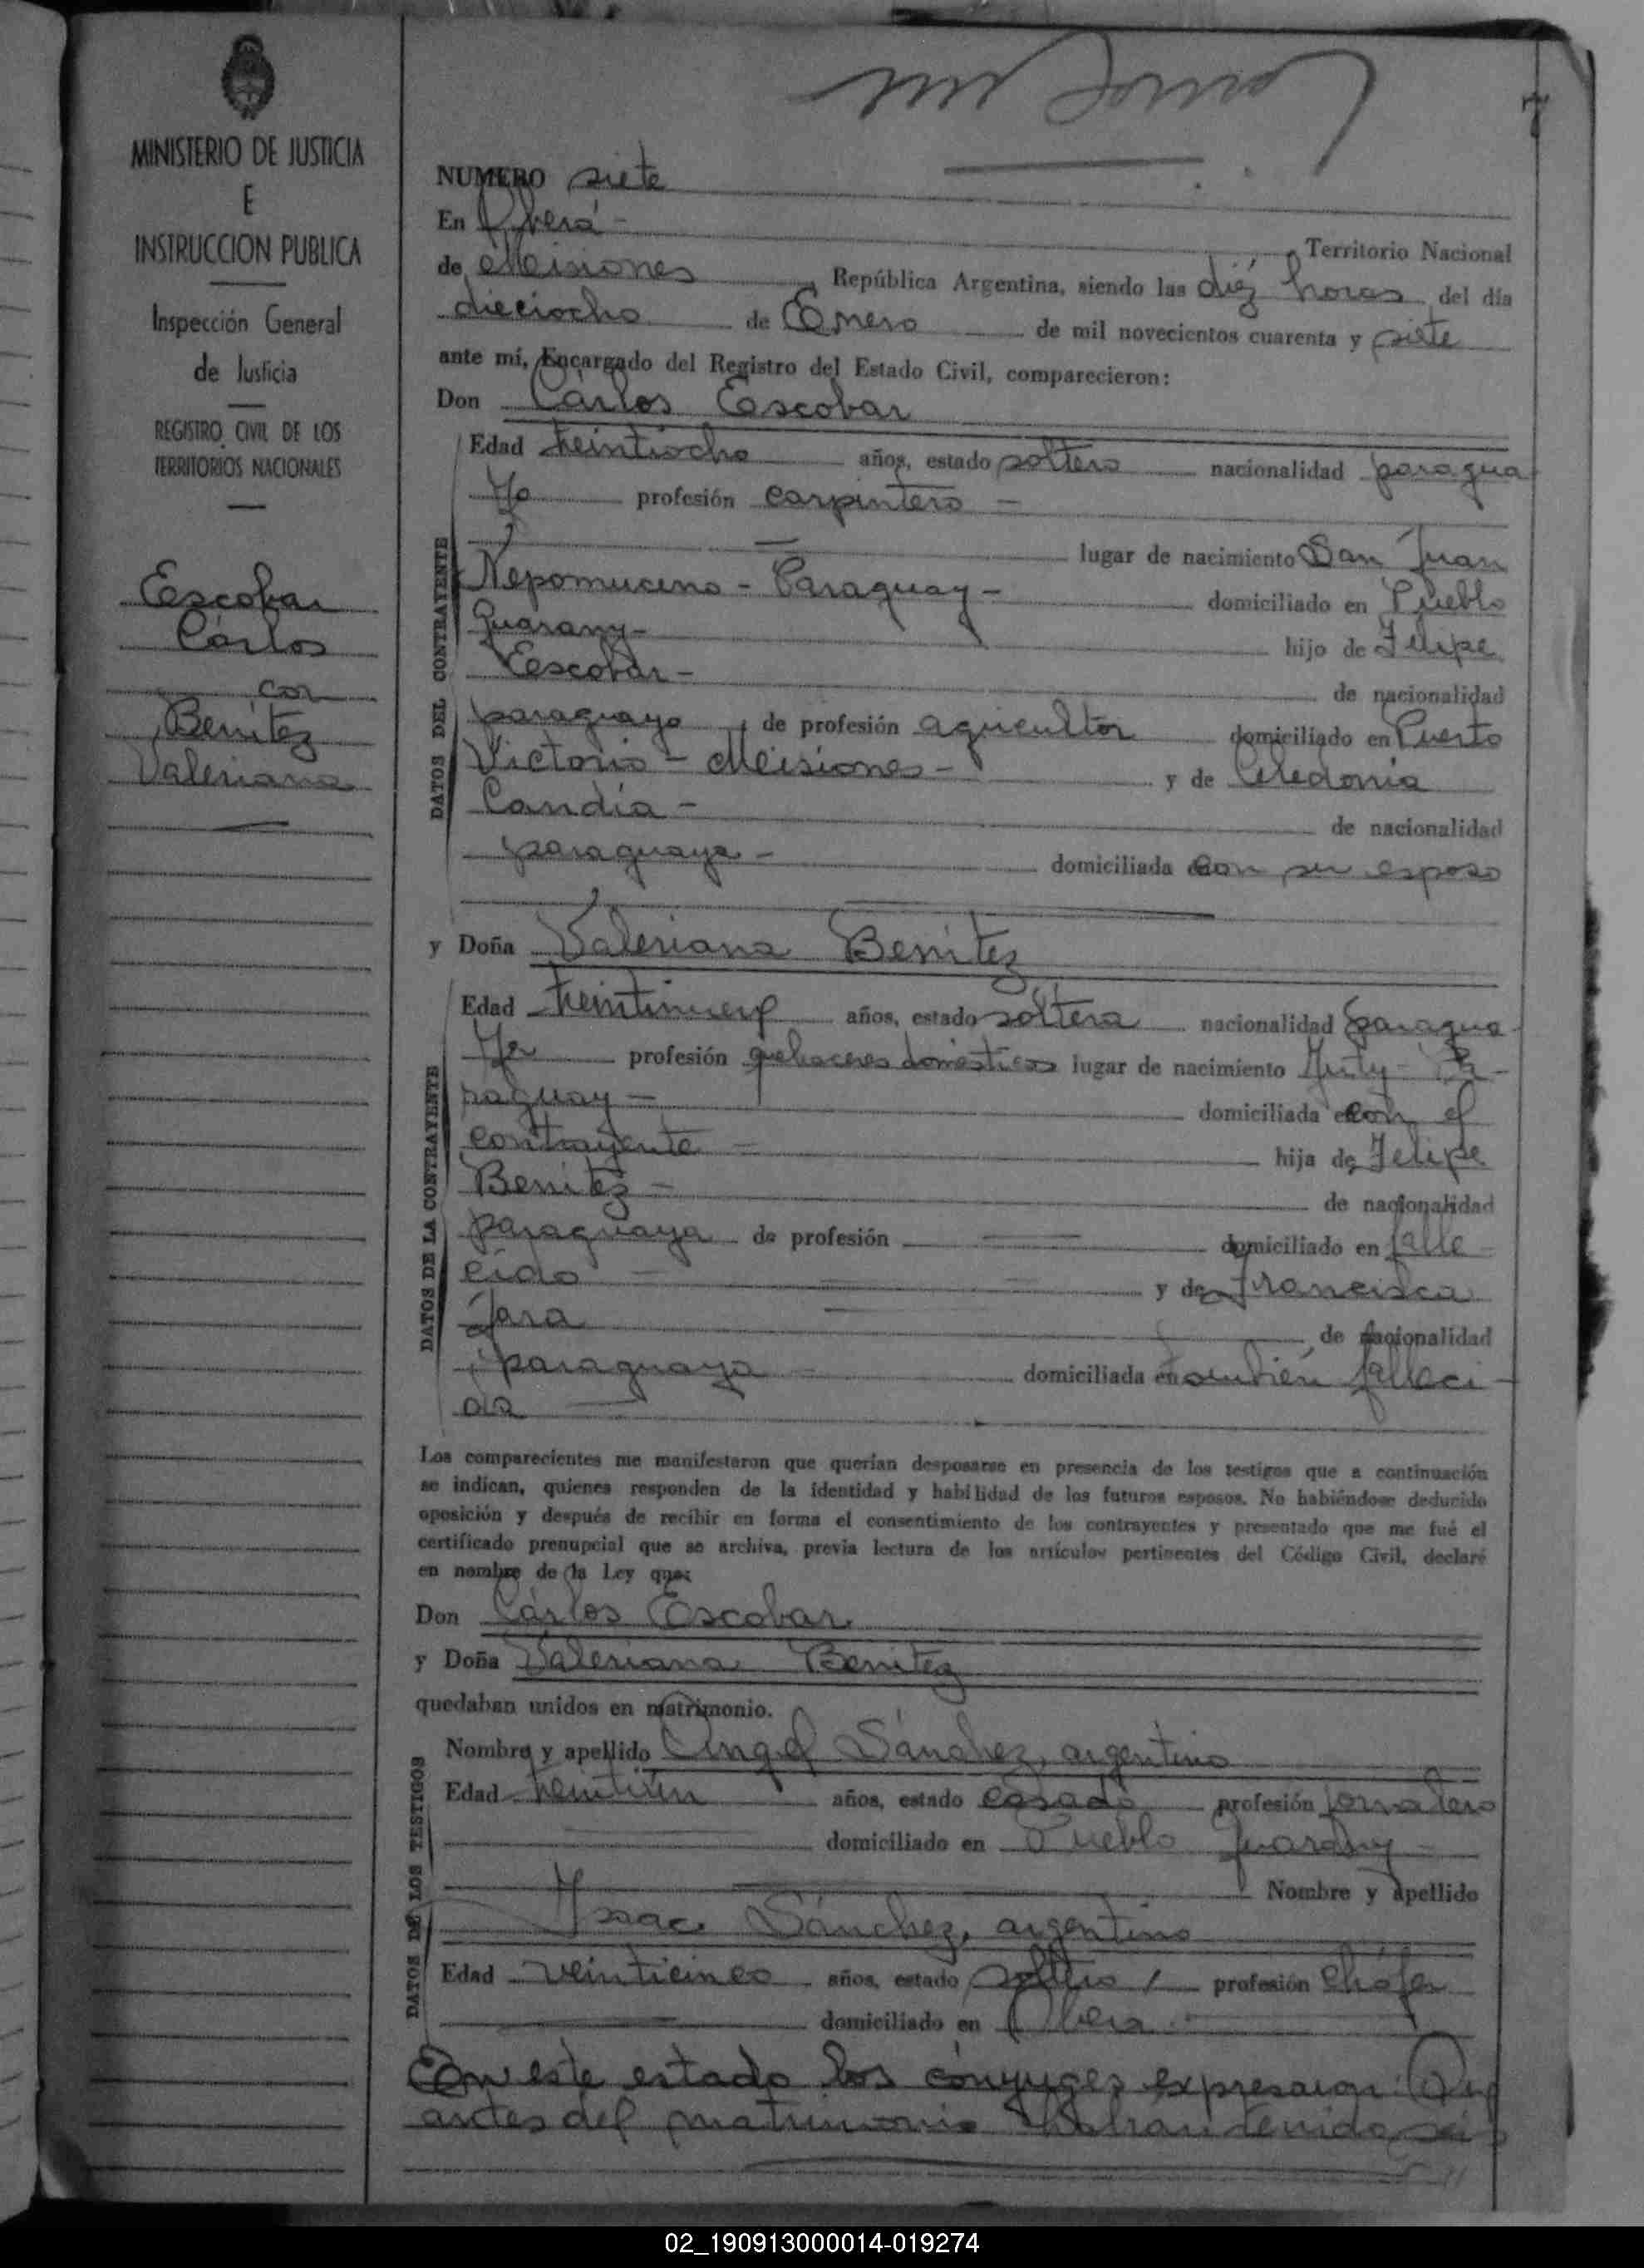 7
MINISTERIO DE JUSTICIA
E
INSTRUCCION PUBLICA
Inspección General
de Justicia
REGISTRO CIVIL DE LOS
TERRITORIOS NACIONALES
Escobar
Cárlos
con
Benítez
Valeriana
NUMERO siete
En Oberá -
Territorio Nacional
de Misiones República Argentina, siendo las diéz horas del día
dieciocho de Enero de mil novecientos cuarenta y siete
ante mí, Encargado del Registro del Estado Civil, comparecieron:
Don Cárlos Escobar
Edad treintiocho años, estado soltero nacionalidad paragua
ya profesión carpintero -
lugar de nacimiento San Juan
Nepomuceno - Paraguay - domiciliado en Pueblo
Guarany - hijo de Felipe
Escobar - de nacionalidad
paraguaya, de profesión agricultor domiciliado en Puerto
Victoria - Misiones - y de Celedonia
Candia - de nacionalidad
paraguaya - domiciliada con su esposo
y Doña Valeriana Benítez
Edad treintinueve años, estado soltera nacionalidad paragua-
ya profesión quehaceres domésticos lugar de nacimiento Yuty - Pa-
raguay - domiciliada con el
contrayente - hija de Felipe
Benítez - de nacionalidad
paraguaya de profesión domiciliado en falle-
cido - y de Francisca
Jara de nacionalidad
paraguaya - domiciliada en también falleci-
da
DATOS DEL CONTRAYENTE
DATOS DE LA CONTRAYENTE
Los comparecientes me manifestaron que querían desposarse en presencia de los testigos que a continuación
se indican, quienes responden de la identidad y habilidad de los futuros esposos. No habiéndose deducido
oposición y después de recibir en forma el consentimiento de los contrayentes y presentado que me fué el
certificado prenupcial que se archiva, previa lectura de los artículos pertinentes del Código Civil, declaré
en nombre de la Ley que:
Don Cárlos Escobar
y Doña Valeriana Benítez
quedaban unidos en matrimonio.
DATOS DE LOS TESTIGOS
Nombre y apellido Angel Sánchez, argentino
Edad treintiún años, estado casado profesión jornalero
domiciliado en Pueblo Guarany -
Nombre y apellido
Ysaac Sánchez, argentino
Edad veinticinco años, estado soltero profesión chófer
domiciliado en Oberá -
En este estado los cónyuges expresaron: Que
antes del matrimonio habían tenido seis
02_190913000014-019274